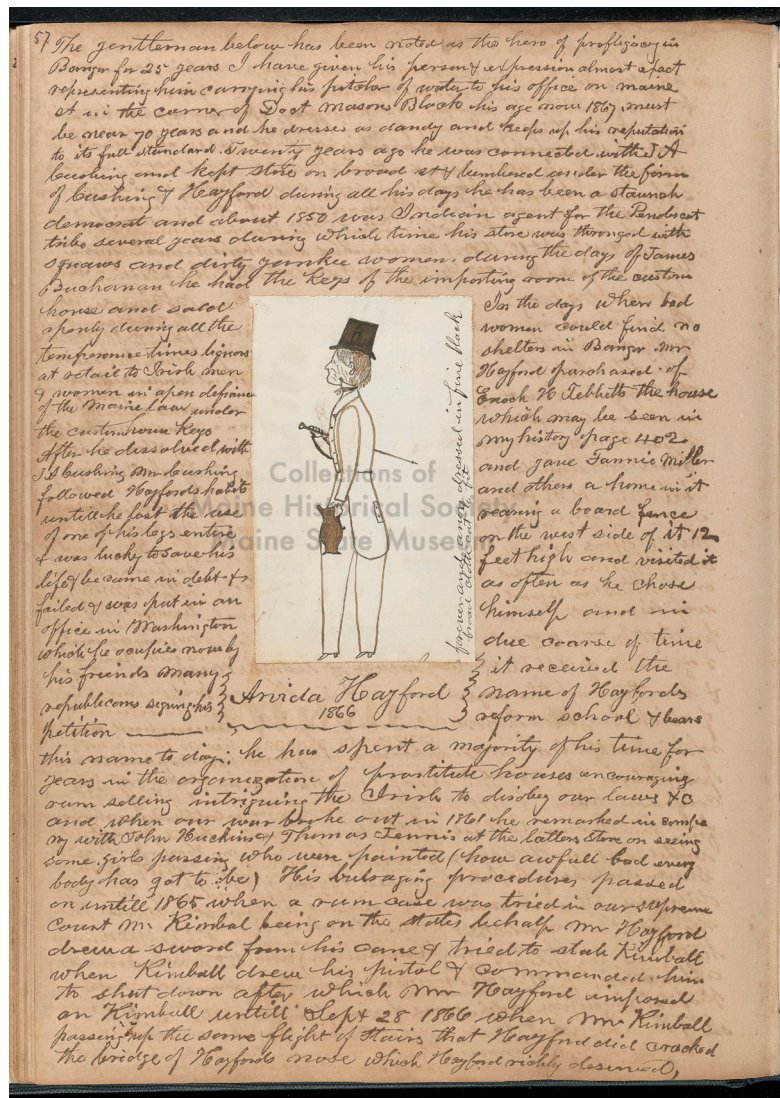 57 The gentleman below has been noted as the hero of profligacy in
Bangor for 25 years I have given his person & expression almost exact
representing him carrying his pitcher of water to his office on maine
st in the corner of Doct Masons Block his age now 1867 must
be near 70 years and he dresses as dandy and keeps up his reputation
to its full standard. Twenty years ago he was connected with J A
Cushing and kept store on broad st & lumbered under the form
of Cushing & Hayford during all his days he has been a staunch
democrat and about 1850 was Indian agent for the Penobscot
tribe several years during which time his store was thronged with
squaws and dirty yankee women. during the days of James
Buchanan he had the keys of the importing room of the custom
house and sold
openly during all the
temperance times liquors
at retail to Irish men
& women in open defiance
of the Maine law under
the customhouse keys
After he dissolved with
J A Cushing Mr Cushing
followed Hayfords habits
untill he lost the use
of one of his legs entire
& was lucky to save his
life & became in debt &
failed & was put in an
office in Washington
which he occupies now by
his friends many
republicans signing his
petition
forever and anon dressed in fine black
broad cloth cut to fit
Arvida Hayford
1866
In the days when bad
women could find no
shelters in Bangor Mr
Hayford purchased of
Enoch H Tebbets the house
which may be seen in
my history page 402
and gave Fannie Miller
and others a home in it
rearing a board fence
on the west side of it 12
feet high and visited it
as often as he chose
himself and in
due coarse of time
it received the
name of Hayfords
reform school & bears
this name to day; he has spent a majority of his time for
years in the organization of prostitute houses encouraging
rum selling intriguing the Irish to disobey our laws &c
and when our war broke out in 1861 he remarked in compa
ny with John Huckins & Thomas Jennis at the latters store on seeing
some girls passin who were painted (how awfull bad every
body has got to be) His outraging procedures passed
on untill 1865 when a rum case was tried in our supreme
court Mr Kimbal being on the states behalf Mr Hayford
drew a sword from his cane & tried to stab Kimball
when Kimball drew his pistol & commanded him
to shut down after which Mr Hayford imposed
on Kimball untill Sept 28 1866 when Mr Kimball
passing up the same flight of stairs that Hayford did cracked
the bridge of Hayfords nose which Hayford richly deserved,
Collections of
Maine Historical Society
Maine State Museum